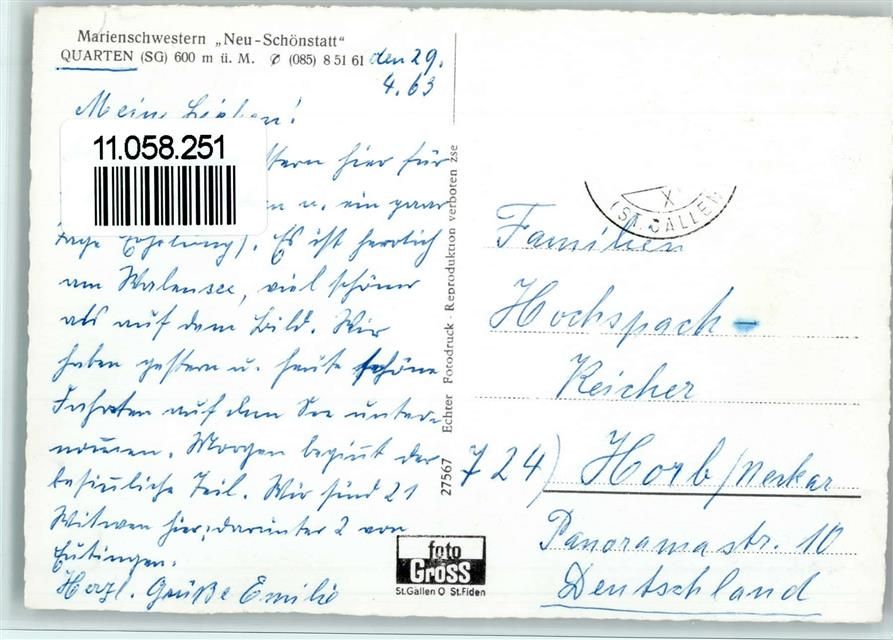 Marienschwestern „Neu-Schönstatt"
QUARTEN (SG) 600 m ü. M. ✆ (085) 8 51 61
den 29.
4.63
Meine Lieben!
11.058.251
hier für
n u. ein paar
Tage Erholung). Es ist herrlich
am Walensee, viel schöner
als auf dem Bild. Wir
haben gestern u. heute schöne
Fahrten auf dem See unter-
nommen. Morgen beginnt der
besinnliche Teil. Wir sind 21
Witwen hier, darunter 2 von
Eutingen.
Herzl. Grüße Emilie
27567 Echter Fotodruck · Reproduktion verboten zse
foto
GROSS
St.Gallen O St.Fiden
X
(ST. GALLEN)
Familien
Hochspach-
Reicher
724) Horb/Neckar
Panoramastr. 10
Deutschland